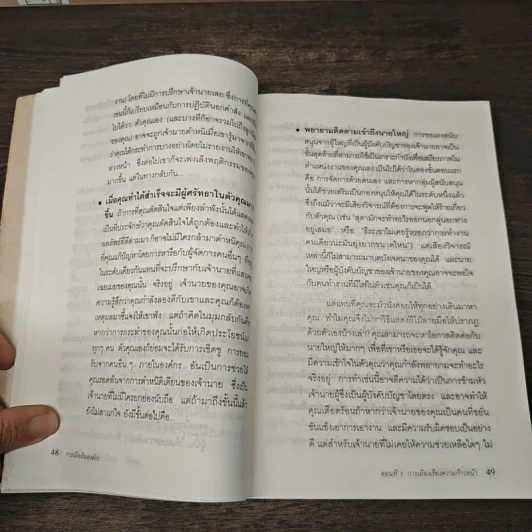 งาน) โดยที่ไม่มีการปรึกษาเจ้านายเลย ซึ่งการที่คุณ
เช่นนี้ก็เปรียบเหมือนกับการปฏิบัตินอกคำสั่ง และ
ไปได้ว่า ตัวคุณเอง (และบางทีก็อาจรวมไปถึง
ของคุณ) อาจจะถูกเจ้านายตำหนิเมื่อเขารู้มาจาก
ว่าคุณได้กระทำการบางอย่างโดยไม่รายงานให้เขา
ล่วงหน้า ซึ่งต่อไปเขาก็จะเพ่งเล็งพฤติกรรมของ
มากขึ้น แต่ในทางกลับกัน...
• เมื่อคุณทำได้สำเร็จจะมีผู้ศรัทธาในตัวคุณมาก
ขึ้น ถ้าการที่คุณตัดสินใจแต่เพียงลำพังนั้นได้แสดง
เป็นที่ประจักษ์ว่าคุณตัดสินใจได้ถูกต้องและทำให้
ผลลัพธ์ที่ดีตามมา ก็อาจไม่มีใครกล้ามาตำหนิคุณ
ที่คุณแก้ปัญหาโดยการหารือกับผู้จัดการคนอื่นๆ ที่
ในระดับเดียวกันแทนที่จะปรึกษากับเจ้านายที่แสน
เฉยเมยของคุณนั้น จริงอยู่ เจ้านายของคุณอาจเกิด
ความรู้สึกว่าคุณกำลังลองดีกับเขาและคุณก็ต้อง
เหตุผลมาชี้แจงให้เขาฟัง แต่ถ้าคิดในมุมกลับกัน
หากว่าการกระทำของคุณนั้นก่อให้เกิดประโยชน์
ทุกๆ คน ตัวคุณเองก็ย่อมจะได้รับการเชิดชู การยอม
รับจากคนอื่น ๆ ภายในองค์กร อันเป็นการช่วยให้
คุณรอดพ้นจากการตำหนิติเตียนของเจ้านาย ซึ่งเป็น
เจ้านายที่ไม่มีใครยกย่องนับถือ แต่ถ้ามาถึงขั้นนี้แล้ว
ยังไม่สาแก่ใจ ยังมีขั้นต่อไปคือ...
48 การเมืองในองค์กร
• พยายามติดตามเข้าถึงนายใหญ่ การขอแรงสนับ-
สนุนจากผู้ใหญ่ที่เป็นผู้บังคับบัญชาของเจ้านายอาจเป็น
ขั้นสุดท้ายที่สามารถใช้เป็นเกราะกำบังเพื่อเสถียรภาพใน
ตำแหน่งงานของคุณเอง เป็นไปได้ว่าในสองขั้นตอนแรก
คือ การจัดการด้วยตนเอง และการหากลุ่มผู้สนับสนุน
นั้นได้ช่วยเสริมเป็นกองหนุนให้คุณได้ในระดับหนึ่งแล้ว
ซึ่งถึงแม้ว่าจะมีเสียงวิจารณ์ที่ต้องการจะพูดให้ร้ายเกี่ยว
กับตัวคุณ (เช่น "สุดามักจะทำอะไรออกนอกลู่นอกทาง
อยู่เสมอ" หรือ "ธีระเขาไม่เคยรู้หรอกว่าการทำงาน
คนเดียวน่ะมันยุ่งยากขนาดไหน") แต่เสียงวิจารณ์
เหล่านี้ก็ไม่สามารถมาบดบังเจตนาของคุณได้ และนาย
ใหญ่หรือผู้บังคับบัญชาของเจ้านายของคุณอาจจะพอใจ
กับคนทำงานที่มีไฟในตัวเช่นคุณก็เป็นได้
แต่แทนที่คุณจะบังบังคอยให้ทุกอย่างเดินมาหา
คุณ ทำไมคุณจึงไม่หาวิธีแสดงฝีไม้ลายมือให้ปรากฏ
ด้วยตัวเองบ้างเล่า? คุณสามารถจะหาโอกาสติดต่อกับ
นายใหญ่ให้มากๆ เพื่อที่เขาหรือเธอจะได้รู้จักคุณ และ
มีความเข้าใจในตัวคุณว่าคุณกำลังพยายามจะทำอะไร
จริงอยู่ การทำเช่นนี้อาจตีความได้ว่าเป็นการข้ามหัว
เจ้านายผู้ซึ่งเป็นผู้บังคับบัญชาโดยตรง และอาจทำให้
คุณเดือดร้อนถ้าหากว่าเจ้านายของคุณเป็นคนที่ขยัน
ขันแข็งเอาการเอางาน และมีความรับผิดชอบเป็นอย่าง
ดี แต่สำหรับเจ้านายที่ไม่เคยให้ความช่วยเหลือใดๆ ไม่
ตอนที่ 1 การเมืองเรื่องความก้าวหน้า 49